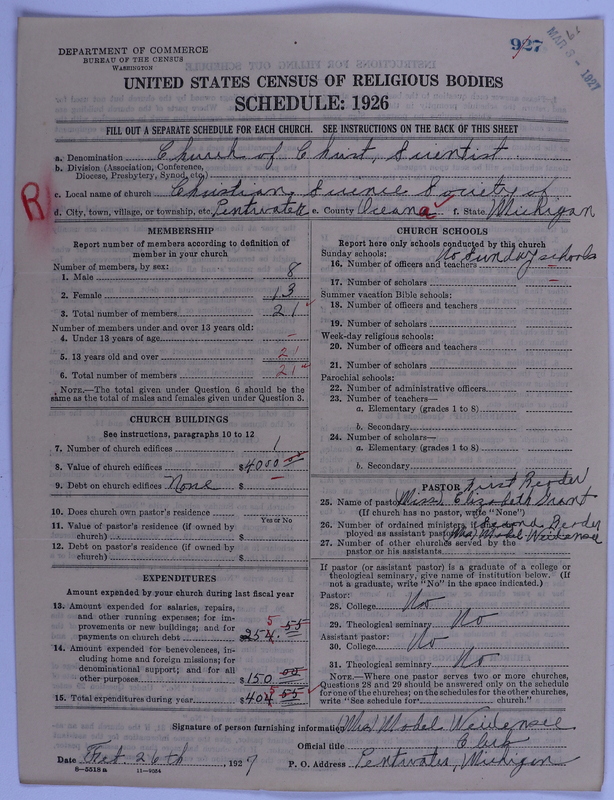 DEPARTMENT OF COMMERCE
BUREAU OF THE CENSUS
WASHINGTON
927
MAR 3 - 1927
UNITED STATES CENSUS OF RELIGIOUS BODIES
SCHEDULE: 1926
FILL OUT A SEPARATE SCHEDULE FOR EACH CHURCH. SEE INSTRUCTIONS ON THE BACK OF THIS SHEET
a. Denomination Church of Christ, Scientist
b. Division (Association, Conference,
Diocese, Presbytery, Synod, etc)
c. Local name of church Christian Science Society of
R
d. City, town, village, or township, etc. Pentwater e. County Oceana f. State Michigan
MEMBERSHIP
Report number of members according to definition of
member in your church
Number of members, by sex:
1. Male 8
2. Female 13
3. Total number of members 21
Number of members under and over 13 years old:
4. Under 13 years of age -
5. 13 years old and over 21
6. Total number of members 21
NOTE.—The total given under Question 6 should be the
same as the total of males and females given under Question 3.
CHURCH BUILDINGS
See instructions, paragraphs 10 to 12
7. Number of church edifices 1
8. Value of church edifices $4000 00
9. Debt on church edifices None $ -
10. Does church own pastor's residence
Yes or No
11. Value of pastor's residence (if owned by
church) $
12. Debt on pastor's residence (if owned by
church) $
EXPENDITURES
Amount expended by your church during last fiscal year
13. Amount expended for salaries, repairs,
and other running expenses; for im-
provements or new buildings; and for
payments on church debt 254.55 5
14. Amount expended for benevolences, in-
cluding home and foreign missions; for
denominational support; and for all
other purposes $150 00
15. Total expenditures during year $404 55 5
CHURCH SCHOOLS
Report here only schools conducted by this church
Sunday schools: No Sunday schools
16. Number of officers and teachers -
17. Number of scholars -
Summer vacation Bible schools:
18. Number of officers and teachers
19. Number of scholars
Week-day religious schools:
20. Number of officers and teachers
21. Number of scholars
Parochial schools:
22. Number of administrative officers
23. Number of teachers—
a. Elementary (grades 1 to 8)
b. Secondary
24. Number of scholars—
a. Elementary (grades 1 to 8)
b. Secondary
PASTOR First Reader
25. Name of pastor Miss Elizabeth Grant
(If church has no pastor, write "None")
26. Number of ordained ministers, if Second Reader
ployed as assistant pastor Mrs Mabel Weidensee
27. Number of other churches served by the
pastor or his assistants
If pastor (or assistant pastor) is a graduate of a college or
theological seminary, give name of institution below. (If
not a graduate, write "No" in the space indicated.)
Pastor:
28. College No
29. Theological seminary No
Assistant pastor:
30. College No
31. Theological seminary No
NOTE.—Where one pastor serves two or more churches,
Questions 28 and 29 should be answered only on the schedule
for one of the churches; on the schedules for the other churches,
write "See schedule for church."
Signature of person furnishing information Mrs Mabel Weidensee
Official title Clerk
Date Feb 26th, 1927 P. O. Address Pentwater, Michigan
8—5518 a 11—9054